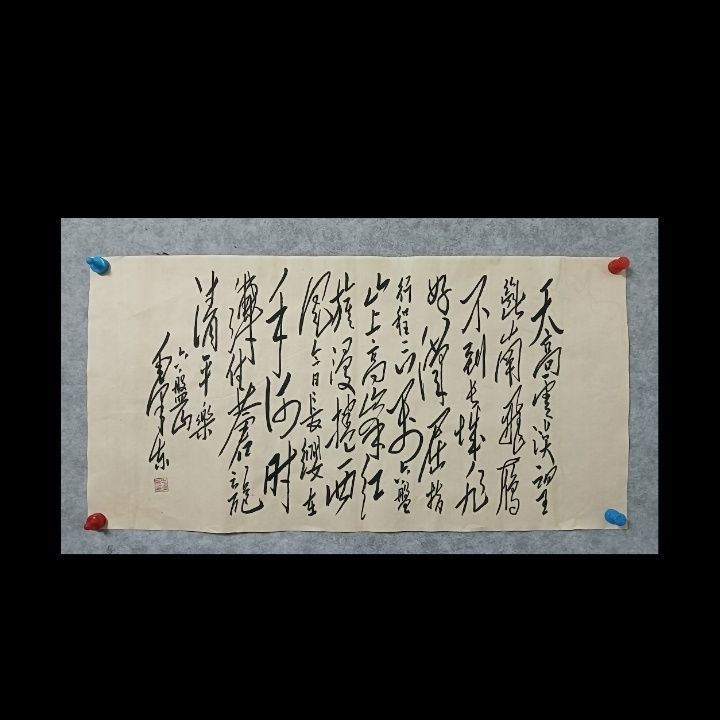 天高雲淡望
斷南飛雁
不到長城非
好漢屈指
行程二萬六盤
山上高峰紅
旗漫捲西
風今日長纓在
手何時
縛住蒼龍
清平樂
六盤山
毛澤東